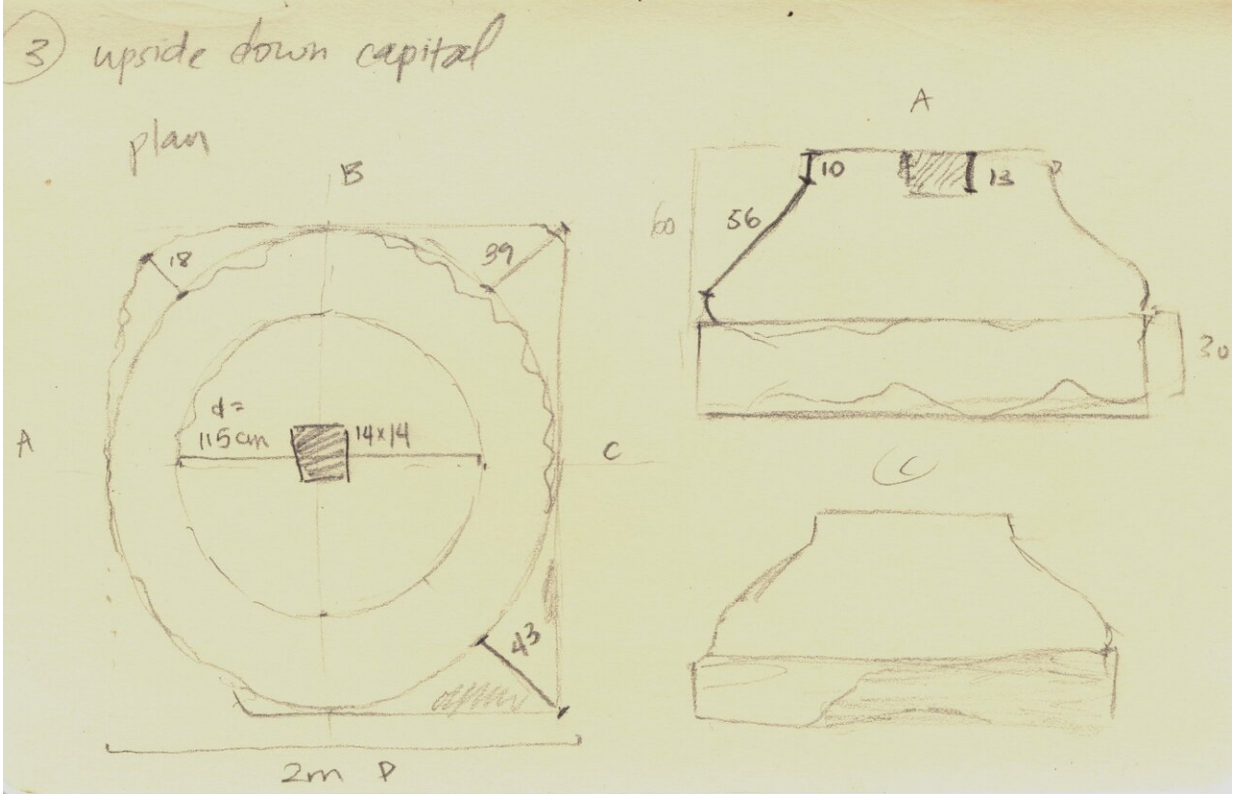 3 upside down capital
plan
B
18
39
d=
115cm
14x14
A
C
43
2m
A
10
13
60
56
30
C